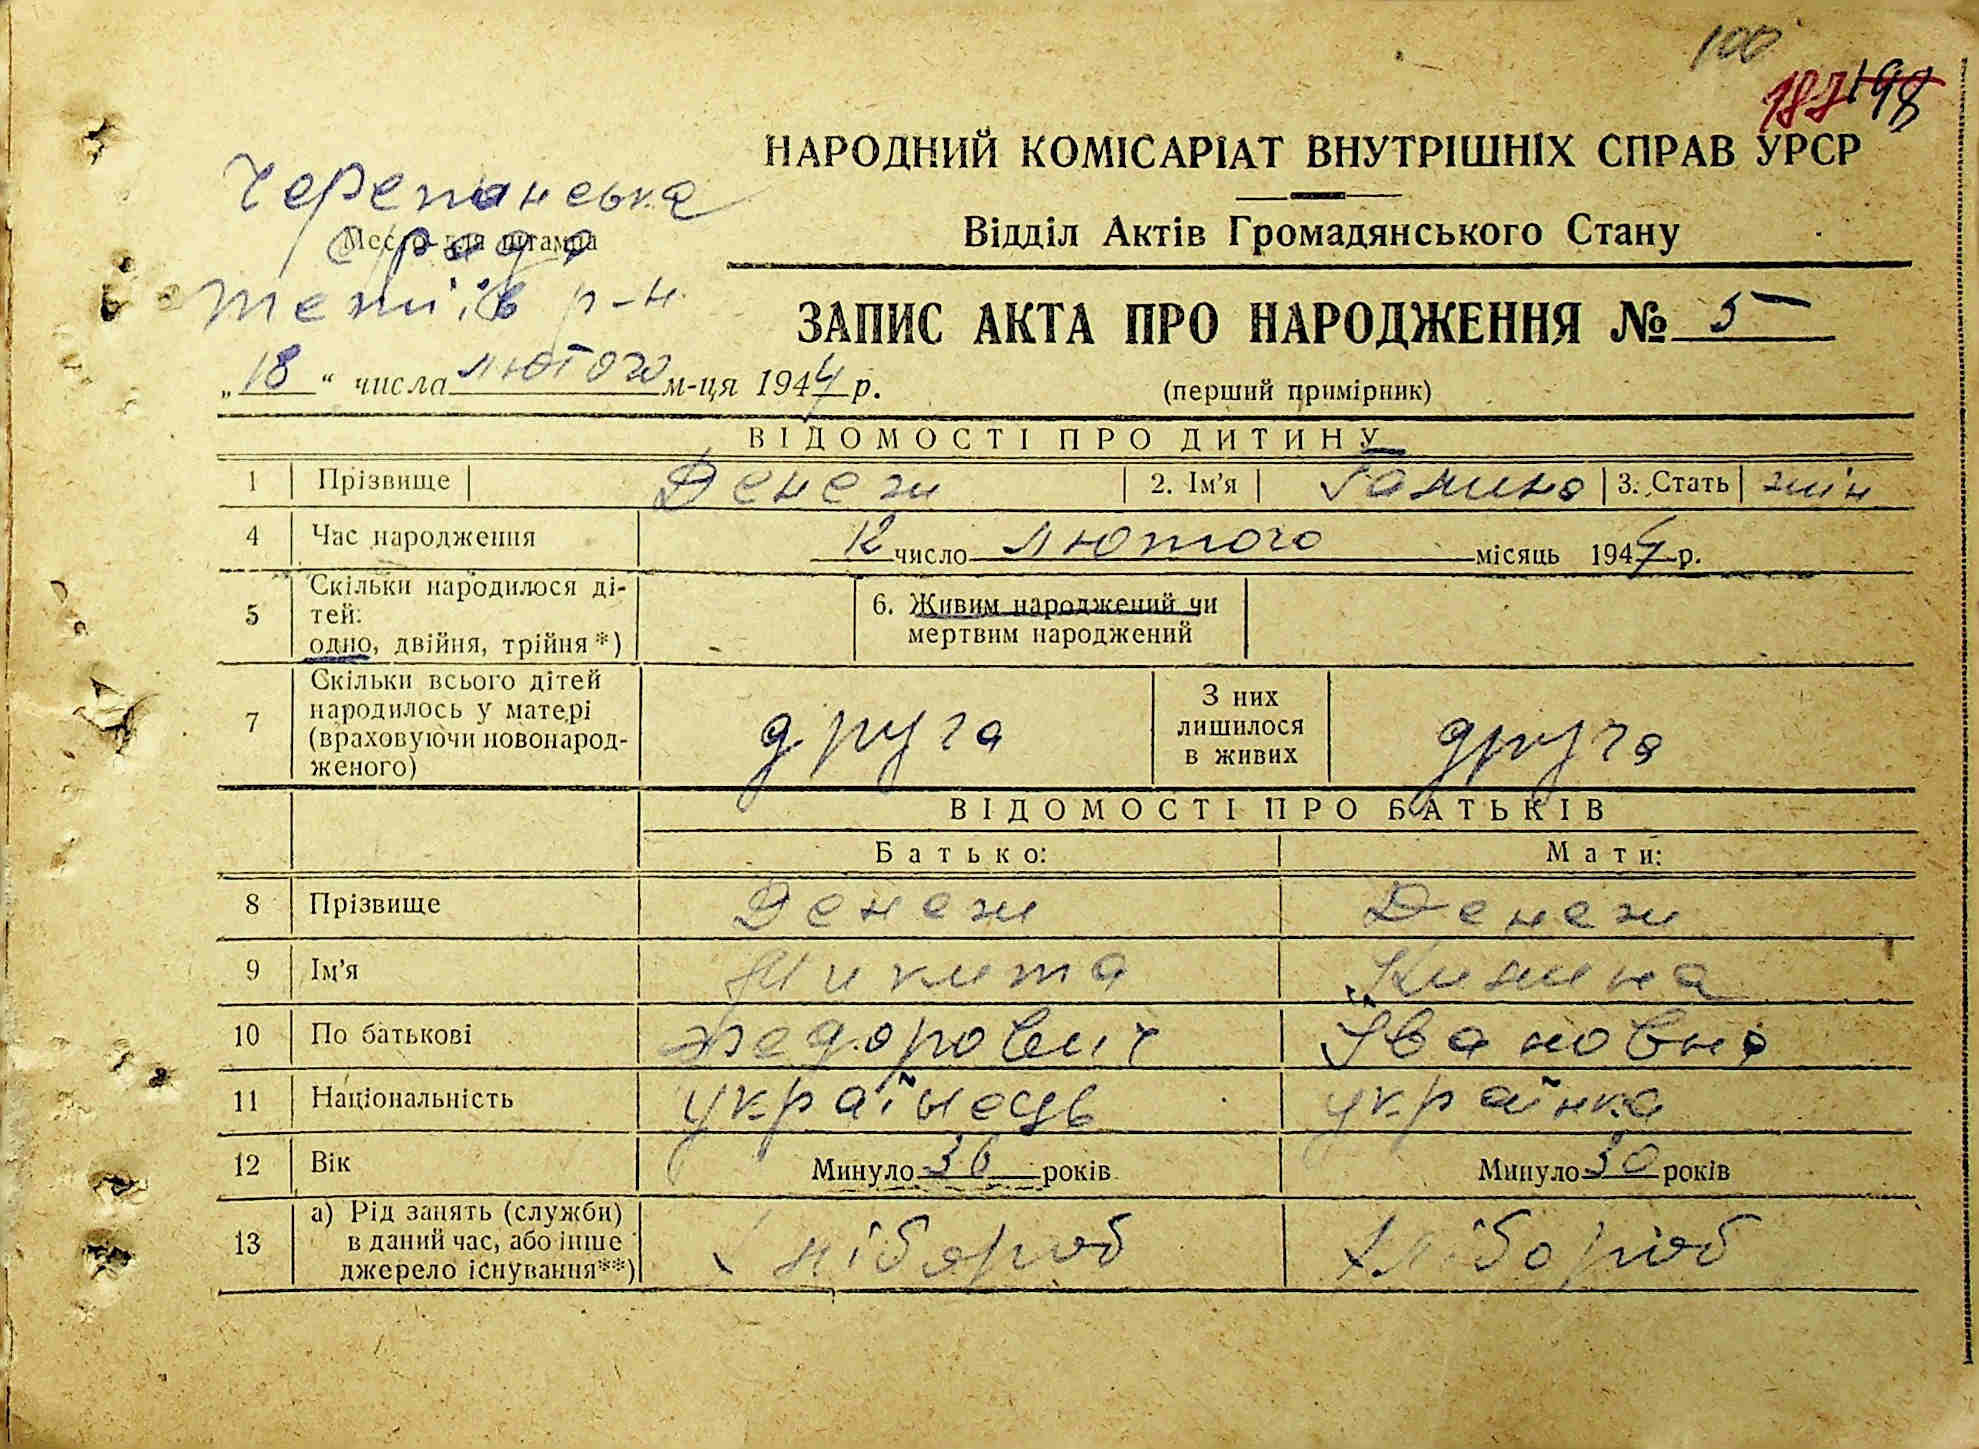 100
187 198
НАРОДНИЙ КОМІСАРІАТ ВНУТРІШНІХ СПРАВ УРСР
Черепинська
Место для штампа
с/рада
Тетіїв р-н
Відділ Актів Громадянського Стану
ЗАПИС АКТА ПРО НАРОДЖЕННЯ № 5
„18“ числа лютого м-ця 1944 р.
(перший примірник)
ВІДОМОСТІ ПРО ДИТИНУ
1 Прізвище Денеж 2. Ім'я Ганина 3. Стать жін
4 Час народження 12 число лютого місяць 1944 р.
5 Скільки народилося дітей: одно, двійня, трійня*) 6. Живим народжений чи мертвим народжений
7 Скільки всього дітей народилось у матері (враховуючи новонародженого) друга З них лишилося в живих друга
ВІДОМОСТІ ПРО БАТЬКІВ
Батько: Мати:
8 Прізвище Денеж Денеж
9 Ім'я Микита
10 По батькові Федорович Івановна
11 Національність українець українка
12 Вік Минуло 36 років Минуло 30 років
13 а) Рід занять (служби) в даний час, або інше джерело існування**) Хлібороб Хлібороб